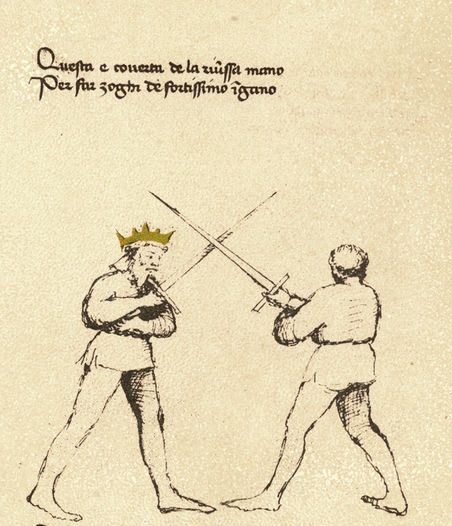 Questa e couerta de la riũssa mano
Per far zoghi de fortissimo ĩgano